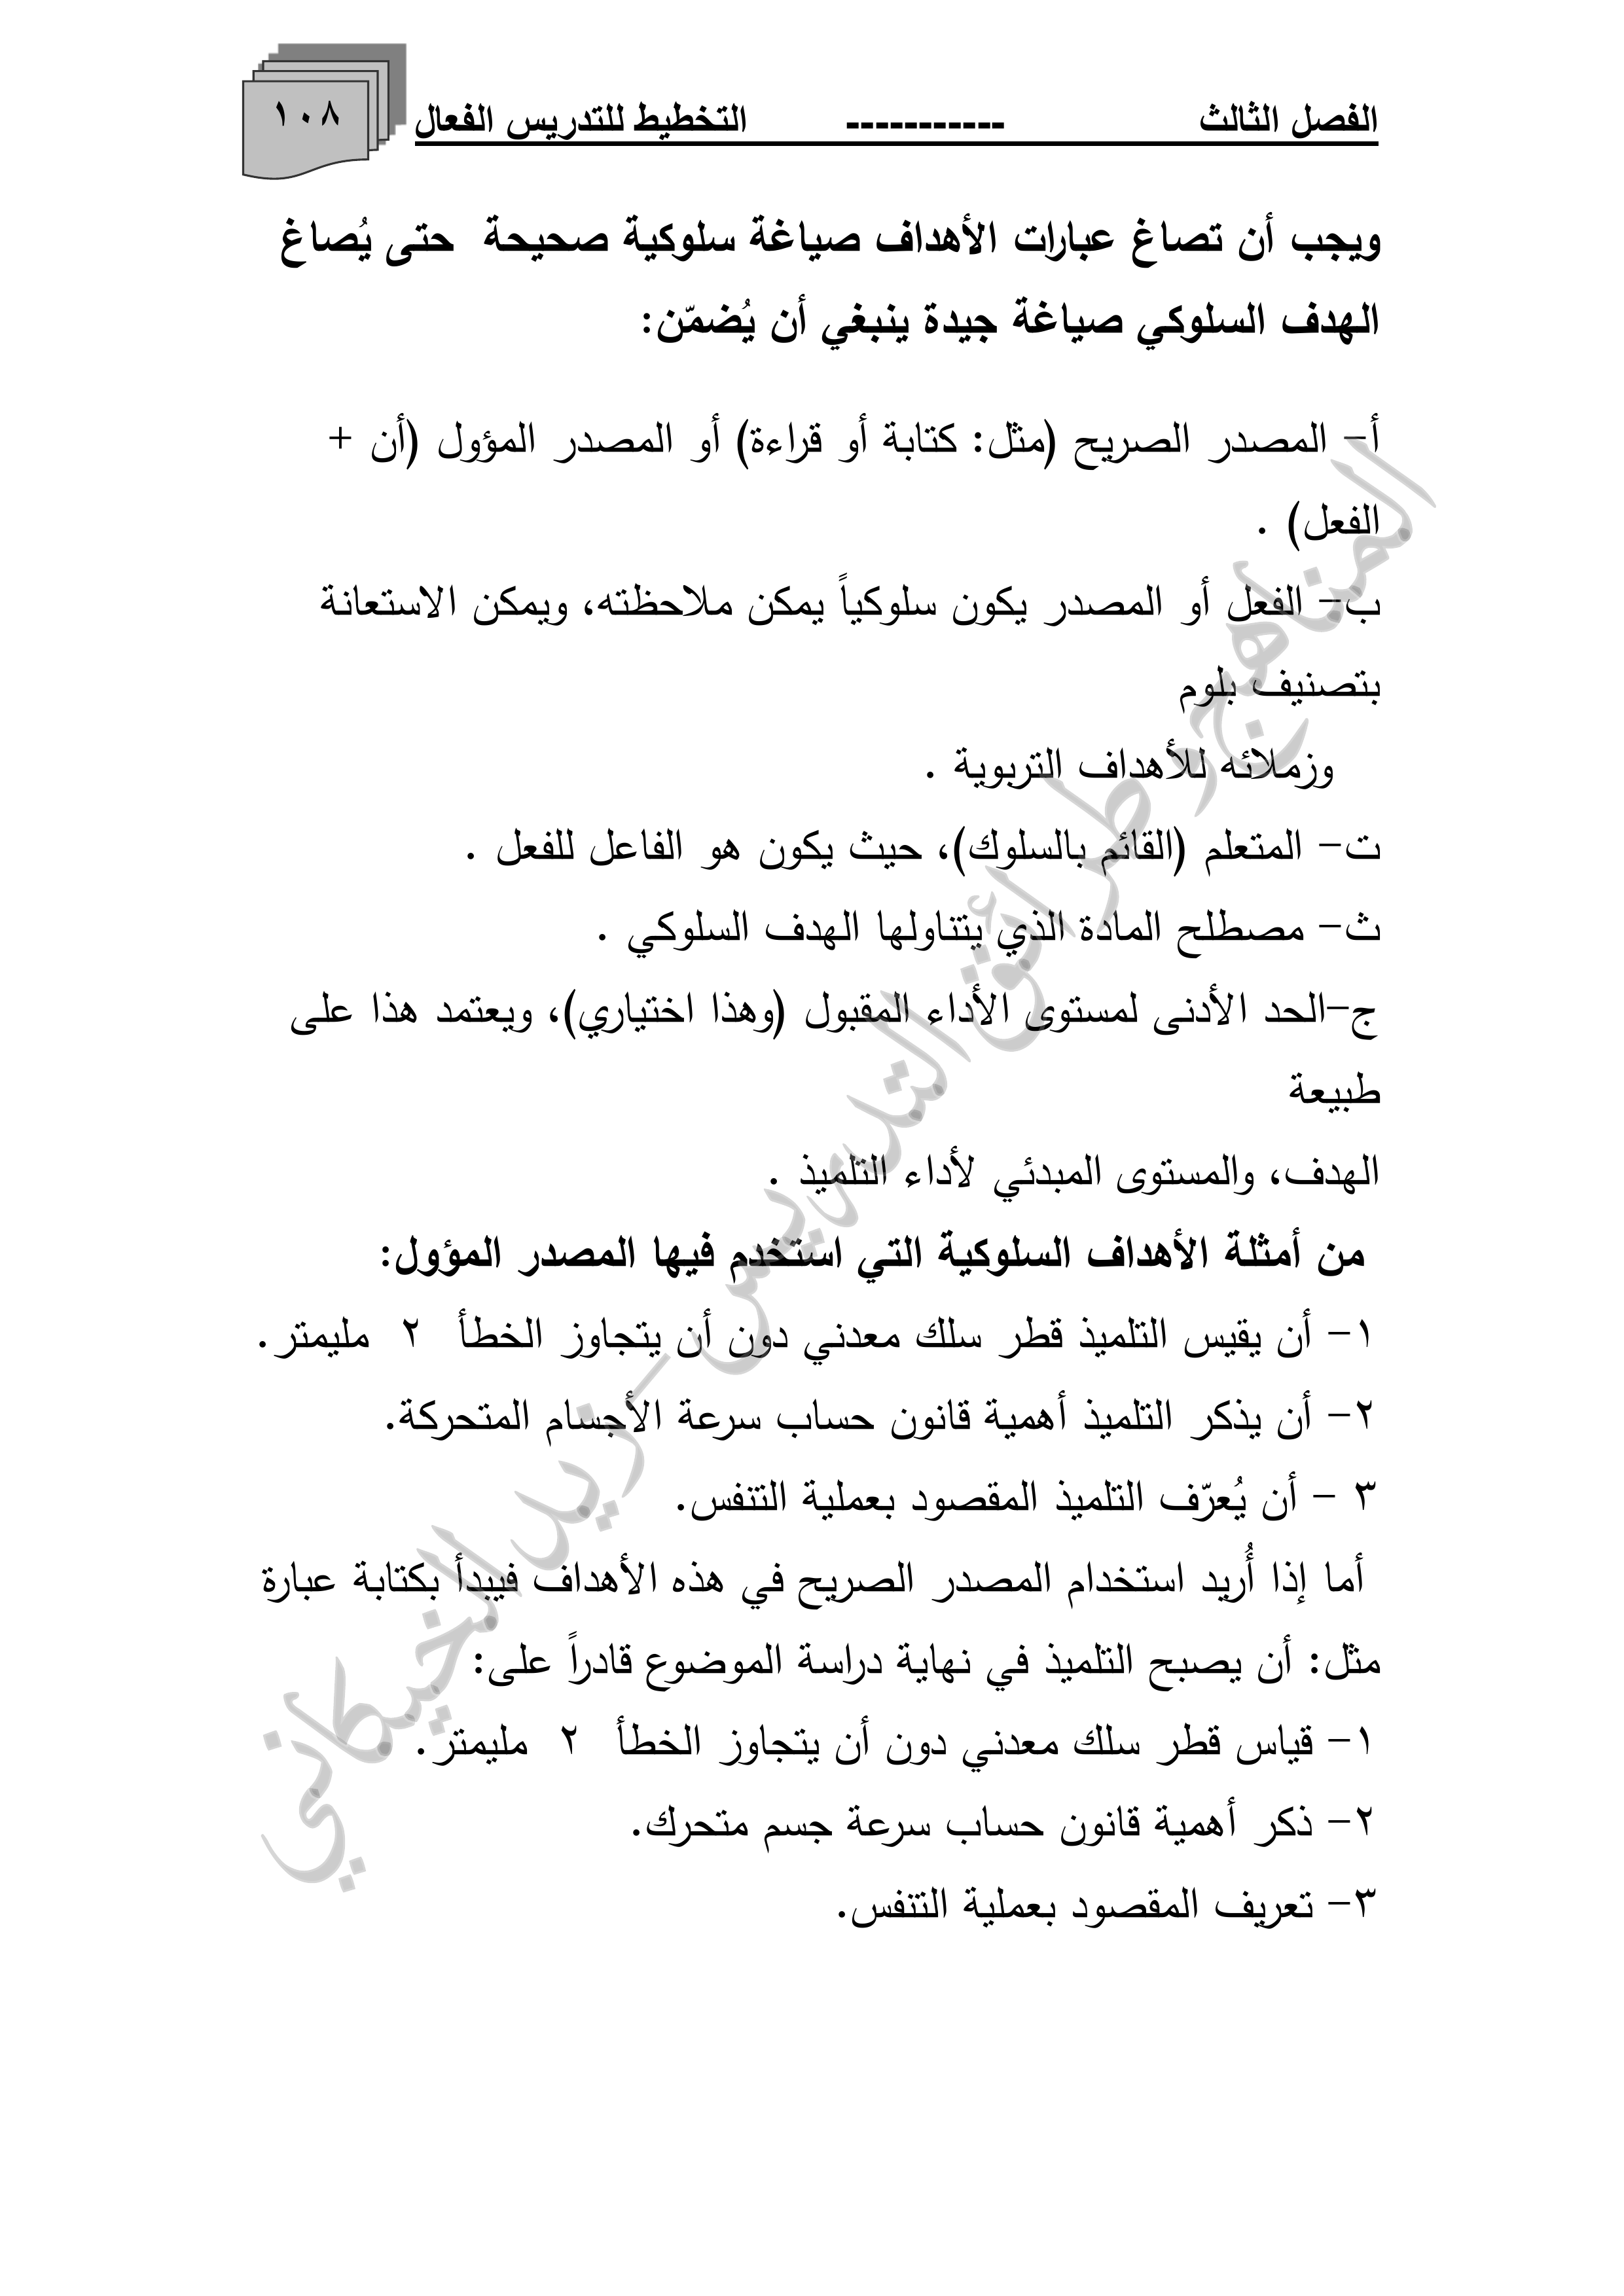 الفصل الثالث ----------- التخطيط للتدريس الفعال ١٠٨
ويجب أن تصاغ عبارات الأهداف صياغة سلوكية صحيحة حتى يُصاغ
الهدف السلوكي صياغة جيدة ينبغي أن يُضمّن:
أ- المصدر الصريح (مثل: كتابة أو قراءة) أو المصدر المؤول (أن +
الفعل) .
ب- الفعل أو المصدر يكون سلوكياً يمكن ملاحظته، ويمكن الاستعانة
بتصنيف بلوم
وزملائه للأهداف التربوية .
ت- المتعلم (القائم بالسلوك)، حيث يكون هو الفاعل للفعل .
ث- مصطلح المادة الذي يتناولها الهدف السلوكي .
ج-الحد الأدنى لمستوى الأداء المقبول (وهذا اختياري)، ويعتمد هذا على
طبيعة
الهدف، والمستوى المبدئي لأداء التلميذ .
من أمثلة الأهداف السلوكية التي استخدم فيها المصدر المؤول:
١- أن يقيس التلميذ قطر سلك معدني دون أن يتجاوز الخطأ ٢ مليمتر.
٢- أن يذكر التلميذ أهمية قانون حساب سرعة الأجسام المتحركة.
٣ - أن يُعرّف التلميذ المقصود بعملية التنفس.
أما إذا أُريد استخدام المصدر الصريح في هذه الأهداف فيبدأ بكتابة عبارة
مثل: أن يصبح التلميذ في نهاية دراسة الموضوع قادراً على:
١- قياس قطر سلك معدني دون أن يتجاوز الخطأ ٢ مليمتر.
٢- ذكر أهمية قانون حساب سرعة جسم متحرك.
٣- تعريف المقصود بعملية التنفس.
المناهج وطرائق التدريس - زيد الخيكاني